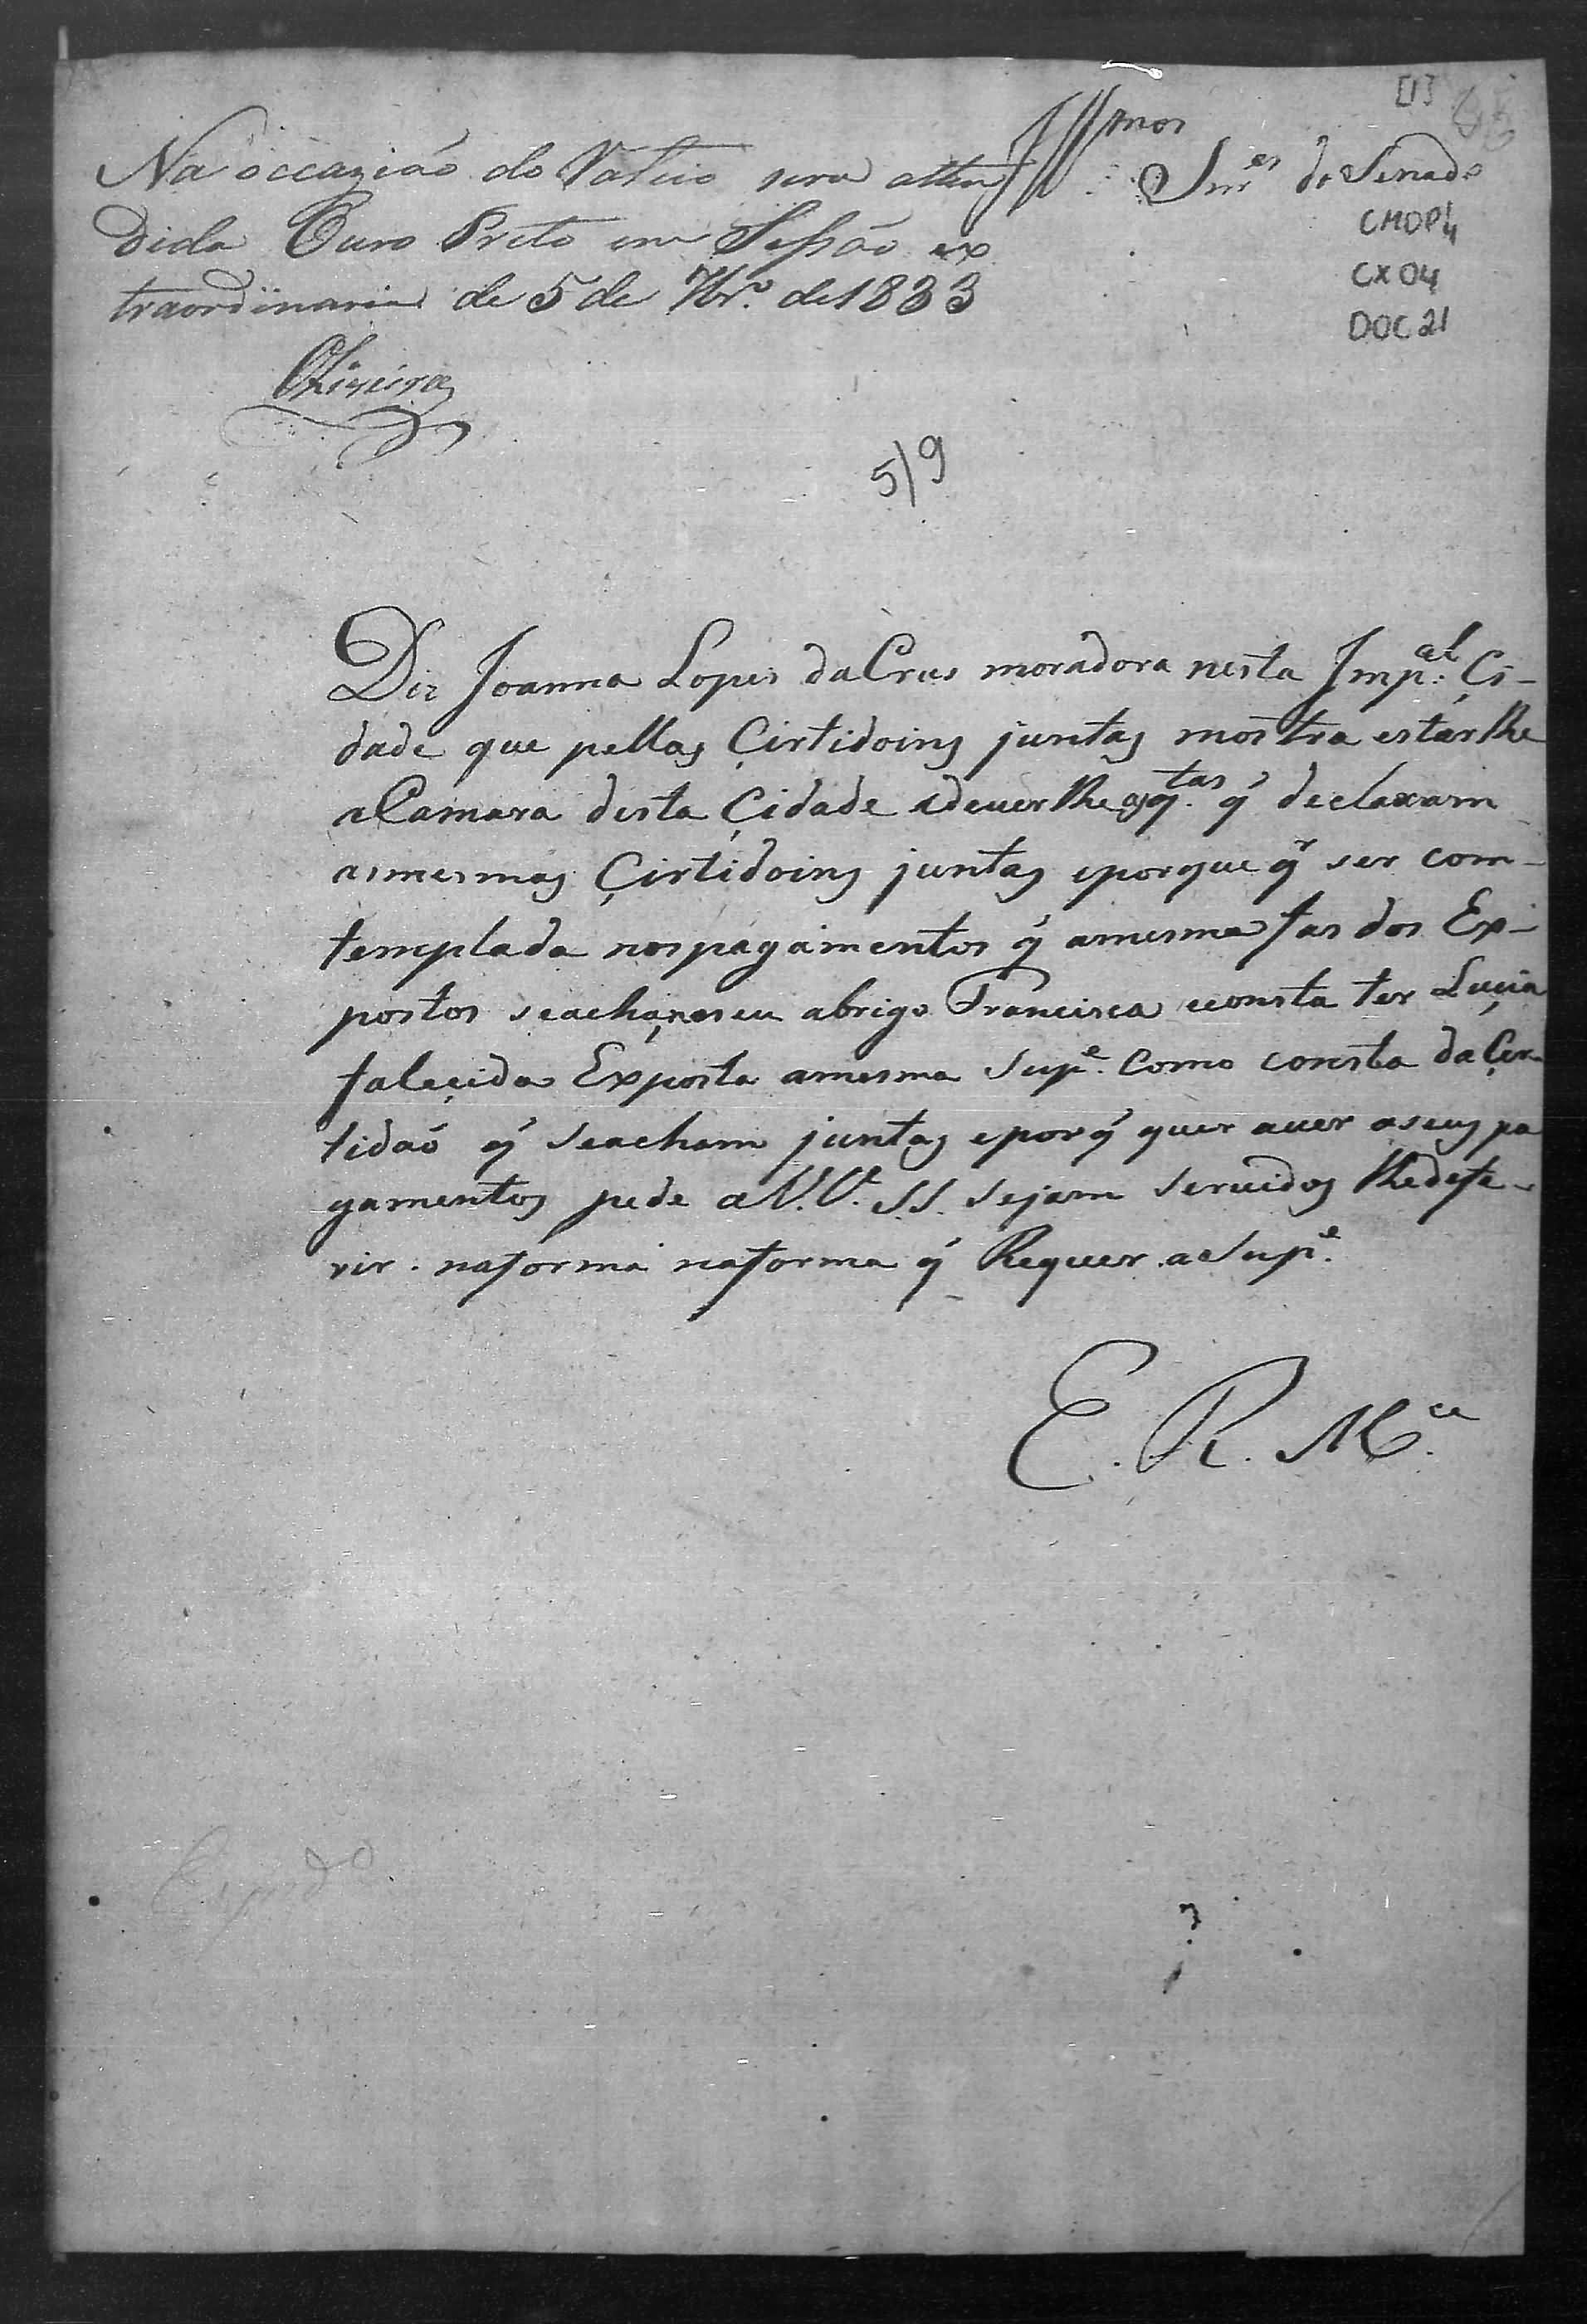 [1]
Na occazião do Rateio sera atten
dida Ouro Preto em Sessão ex
traordinaria de 5 de 7br.º de 1833
Oliveira
Illmos Snr.es do Senado
CMOP4
CX04
DOC 21
5/9
Diz Joanna Lopes da Crus moradora nesta Imp.al Çi-
dade que pellas Çirtidoins juntas mostra estar lhe
a Camara desta Çidade adeuer lhe as q.tas q̃ declaram
as mesmas Çirtidoins juntas eporque qr ser com-
templada nos pagamentos q̃ amesma fas dos Ex-
postos seacha noseu abrigo Francisca econsta ter Luçia
faleçida Exposta amesma Sup.e Como consta da Çer-
tidaõ q̃ seacham juntas epor q̃ quer auer aseus pa
gamentos pede a V.V. S.S. sejam seruidos lhe defe-
rir. naforma naforma q̃ Requer a Sup.e
E. R. M.ce